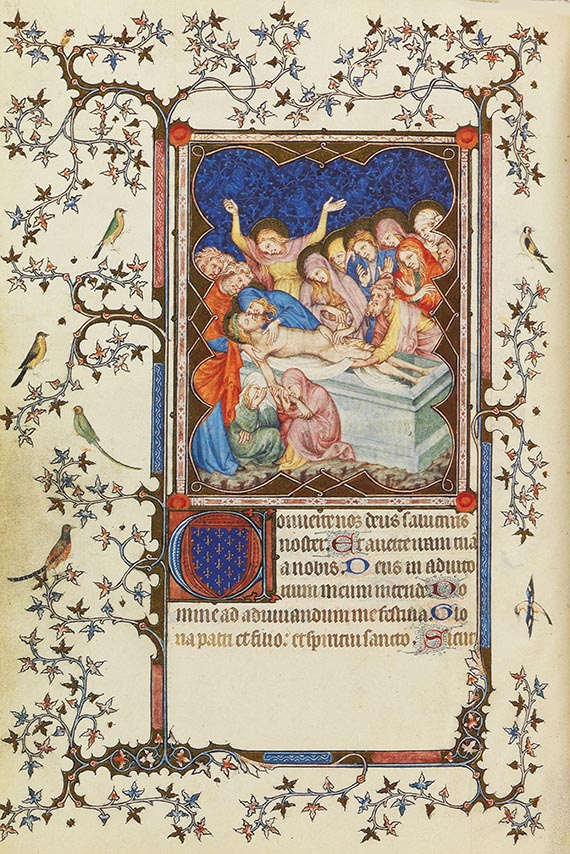 Converte nos deus salutaris
noster. Et averte iram tuā
a nobis. Deus in adiuto
rium meum intende. Do
mine ad adiuvandum me festina. Glo
ria patri et filio: et spiritui sancto. Sicut